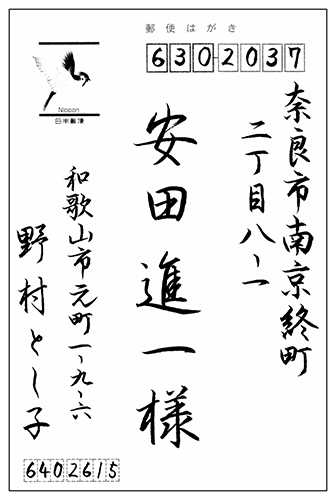 郵便はがき
6302037
奈良市南京終町
二丁目八-一
安田進一様
和歌山市元町一-九-六
野村とし子
6402615
Nippon
日本郵便